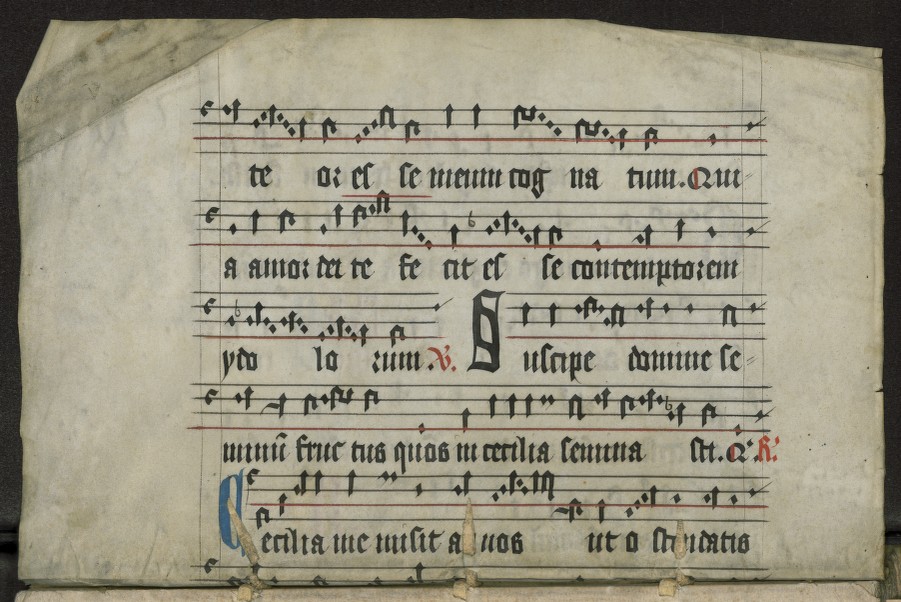 te or es se meum cog na tum. Qui
a amor dei te fe cit es se contemptorem
ydo lo rum. V. Suscipe domine se
minū fruc tus quos in cecilia semina sti. Q. R.
Cecilia me misit a uos ut o stendatis